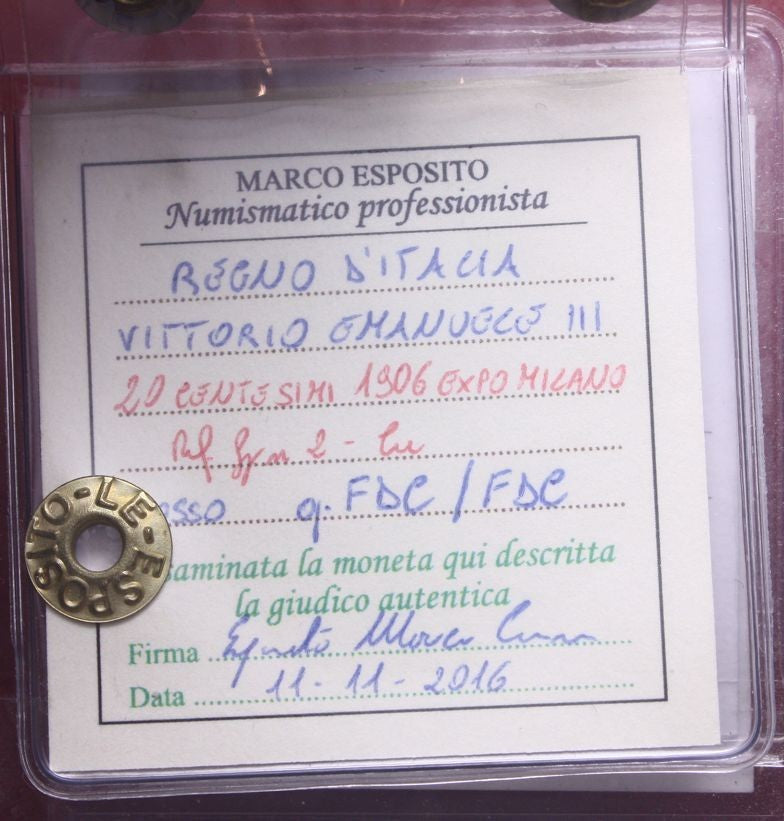 MARCO ESPOSITO
Numismatico professionista
REGNO D'ITALIA
VITTORIO EMANUELE III
20 CENTESIMI 1906 EXPO MILANO
Rif. 2 -
sso q. FDC / FDC
saminata la moneta qui descritta
la giudico autentica
Firma Esposito Marco
Data 11-11-2016
ESPOSITO-LE-